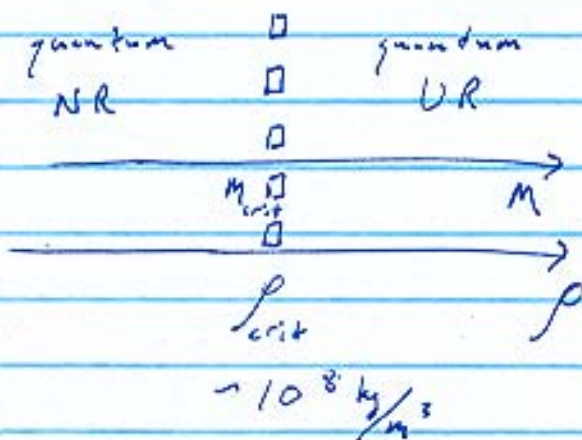 quantum quantum
NR UR
M_crit M
ρ_crit ρ
~ 10^8 kg/m^3